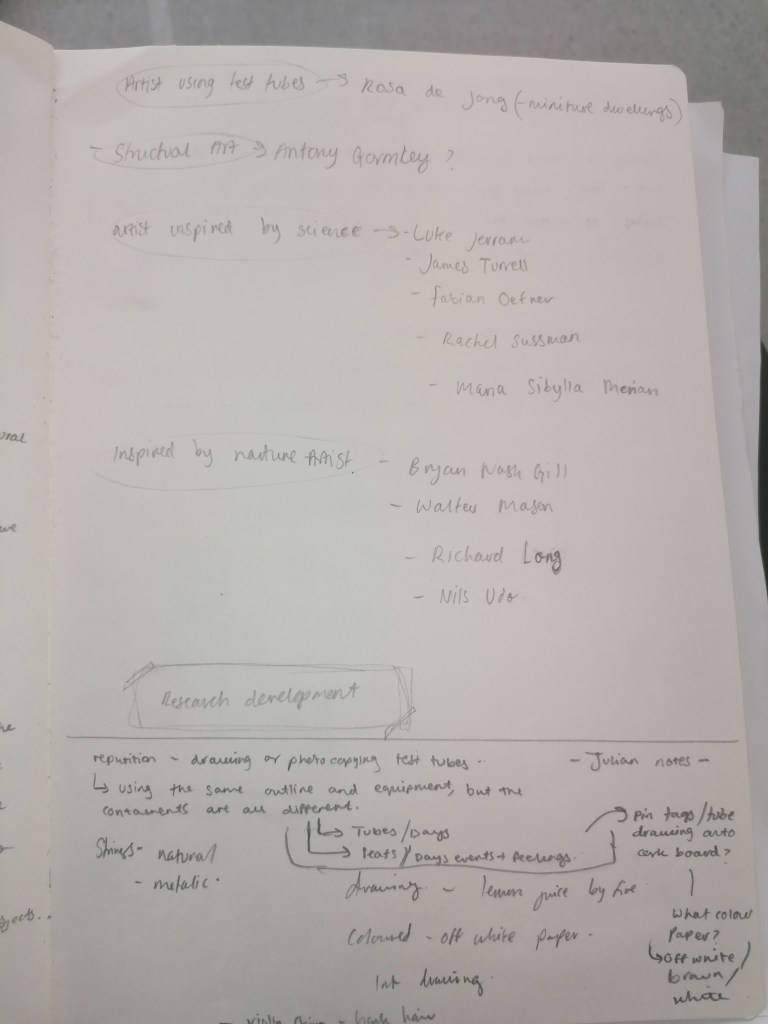 Artist using test tubes → Rosa de Jong (-miniture dwellings)
- Structual Art → Antony Gormley ?
artist inspired by science → - Luke Jerram
- James Turrell
- Fabian Oefner
- Rachel Sussman
- Maria Sibylla Merian
Inspired by nature Artist. - Bryan Nash Gill
- Walter Mason
- Richard Long
- Nils Udo
Research development
- Julian notes -
drawing or photocopying test tubes ..
↳ using the same outline and equipment, but the
are all different.
↳ Tubes / Days
↳ / Days events + feelings.
→ Pin tags / tube
drawing
cork board?
Strings - natural
- metalic.
drawing - lemon juice by fire
Coloured - off white paper -
Ink drawing.
What colour
Paper?
↳ off white /
brown /
white
ural
we
he
jects..